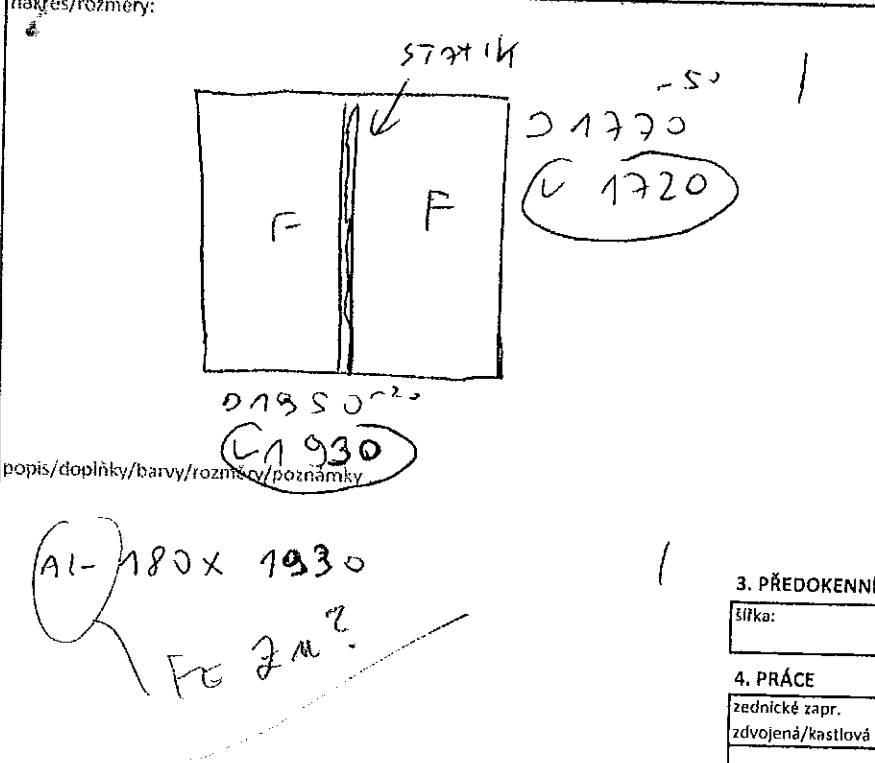 nákres/rozměry:
STATIK
-50
D 1770
V 1720
F F
D 1950 -20
V 1930
popis/doplňky/barvy/rozměry/poznámky
Al- 180 x 1930
Fe Zn?
3. PŘEDOKENNÍ
šířka:
4. PRÁCE
zednické zapr.
zdvojená/kastlová